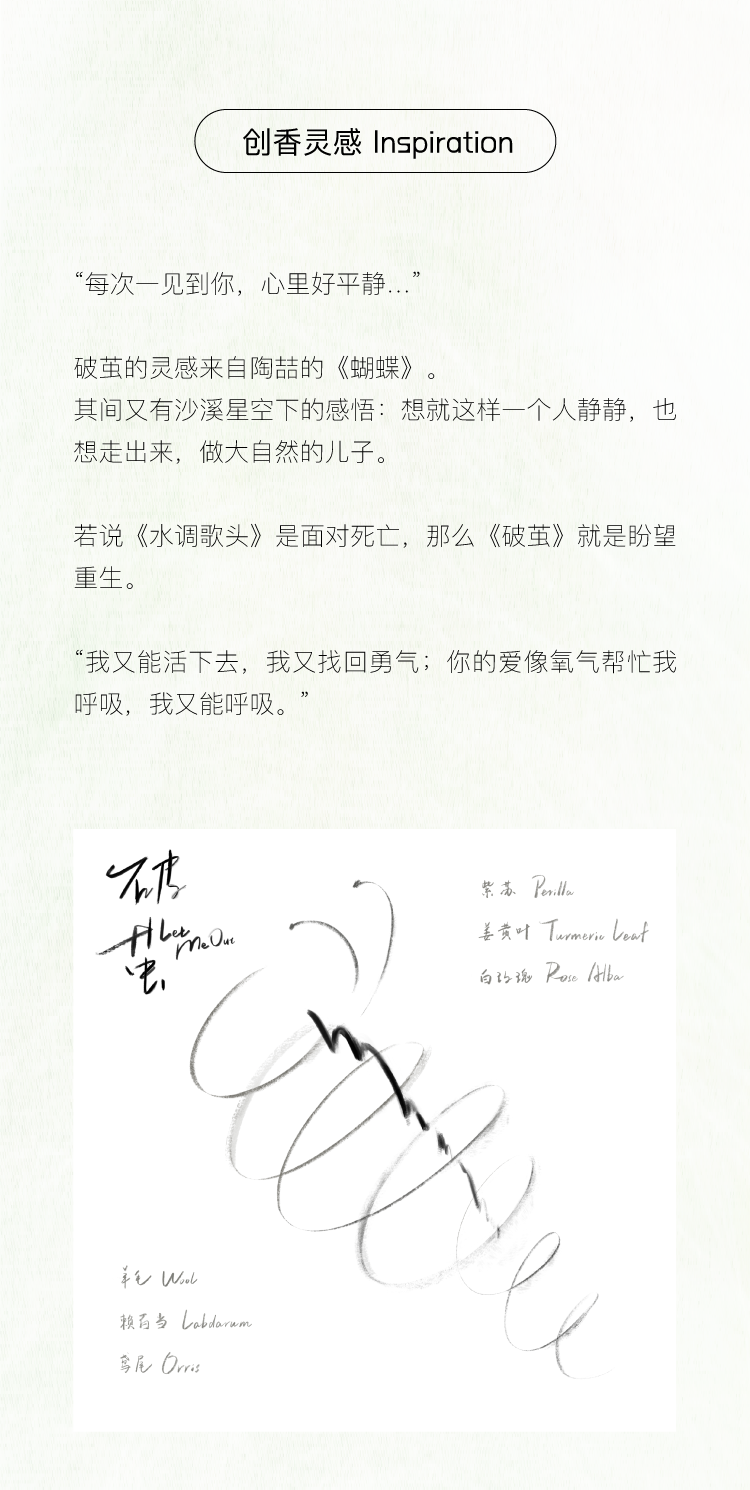 创香灵感 Inspiration
“每次一见到你，心里好平静...”
破茧的灵感来自陶喆的《蝴蝶》。
其间又有沙溪星空下的感悟：想就这样一个人静静，也
想走出来，做大自然的儿子。
若说《水调歌头》是面对死亡，那么《破茧》就是盼望
重生。
“我又能活下去，我又找回勇气；你的爱像氧气帮忙我
呼吸，我又能呼吸。”
破
茧 Let
Me Out
紫苏 Perilla
姜黄叶 Turmeric Leaf
白玫瑰 Rose Alba
羊毛 Wool
赖百当 Labdanum
鸢尾 Orris